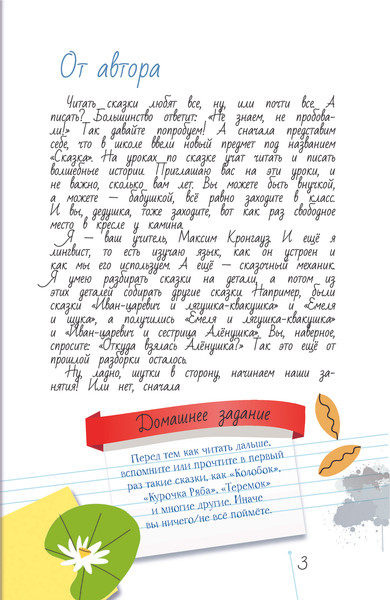 От автора
Читать сказки любят все, ну, или почти все. А
писать? Большинство ответит: «Не знаем, не пробова-
ли!» Так давайте попробуем! А сначала представим
себе, что в школе ввели новый предмет под названием
«Сказка». На уроках по сказке учат читать и писать
волшебные истории. Приглашаю вас на эти уроки, и
не важно, сколько вам лет. Вы можете быть внучкой,
а можете — бабушкой, всё равно заходите в класс.
И вы, дедушка, тоже заходите, вот как раз свободное
место в кресле у камина.
Я — ваш учитель, Максим Кронгауз. И ещё я
лингвист, то есть изучаю язык, как он устроен и
как мы его используем. А ещё — сказочный механик.
Я умею разбирать сказки на детали, а потом из
этих деталей собирать другие сказки. Например, были
сказки «Иван-царевич и лягушка-квакушка» и «Емеля
и щука», а получились «Емеля и лягушка-квакушка»
и «Иван-царевич и сестрица Алёнушка». Вы, наверное,
спросите: «Откуда взялась Алёнушка?» Так это ещё от
прошлой разборки осталось.
Ну, ладно, шутки в сторону, начинаем наши за-
нятия! Или нет, сначала
Домашнее задание
Перед тем как читать дальше,
вспомните или прочтите в первый
раз такие сказки, как «Колобок»,
«Курочка Ряба», «Теремок»
и многие другие. Иначе
вы ничего/не всё поймёте.
3